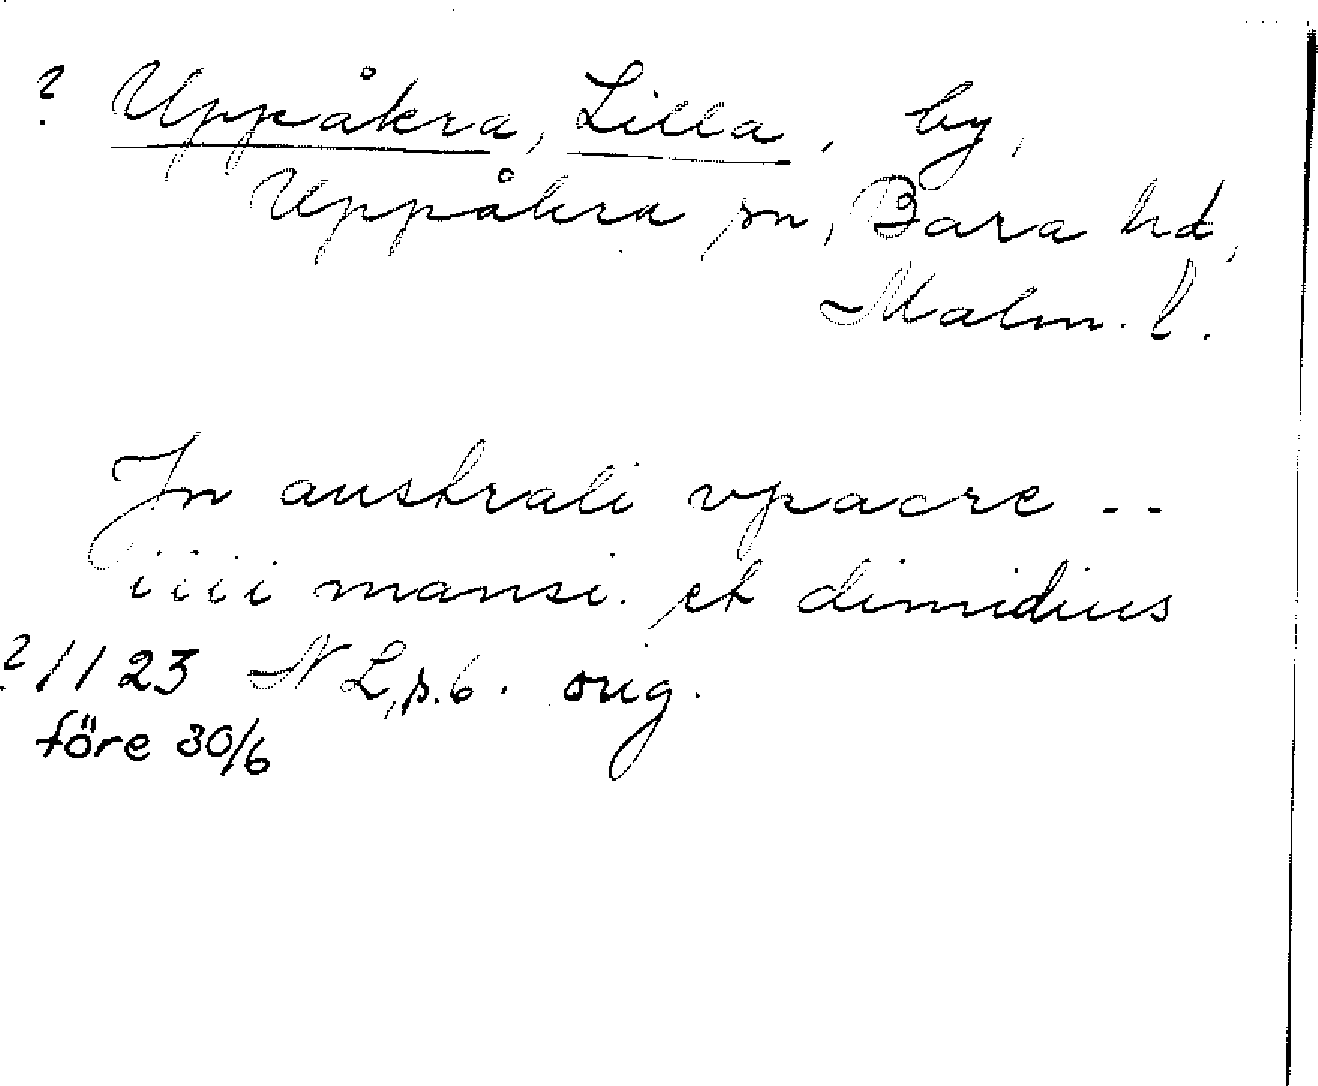 ? Uppåkra, Lilla, by,
Uppåkra sn, Bara hd,
Malm. l.
In australi vpacre --
iiii mansi. et dimidius
? 1123 N L, p. 6. orig.
före 30/6